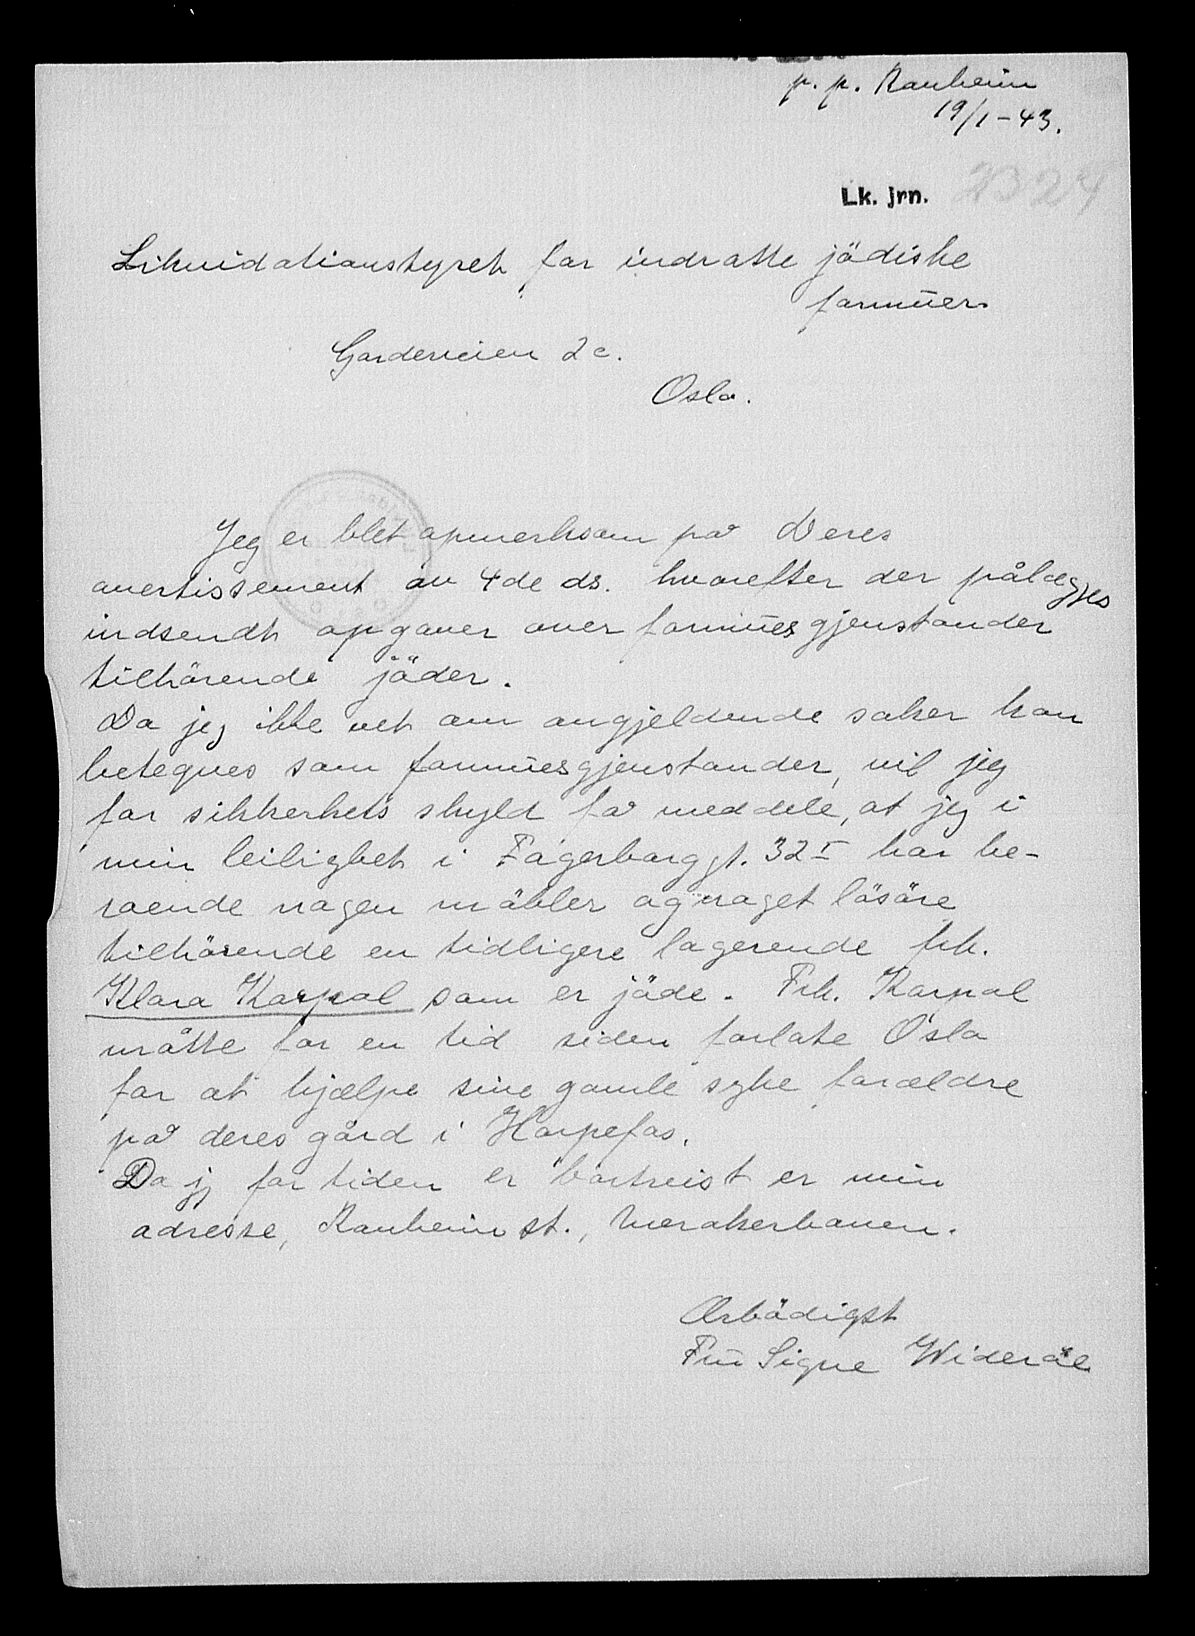 p. p. Ranheim
19/1-43.
Lk. jrn. 2324
Likvidationstyret for indratte jödiske
formüer.
Gardeveien 2c.
Oslo.
Jeg er blet opmerksom på Deres
avertissement av 4de ds. hvorefter der pålægges
indsendt opgaver over formüesgjenstander
tilhörende jöder.
Da jeg ikke vet om angjeldende saker kan
betegnes som formüesgjenstander, vil jeg
for sikkerhets skyld få meddele, at jeg i
min leilighet i Fagerborggt. 32 I har be-
roende nogen möbler og noget lösöre
tilhörende en tidligere logerende frk.
Klara Karpol som er jöde. Frk. Karpol
måtte for en tid siden forlate Oslo
for at hjælpe sine gamle syke forældre
på deres gård i Harpefos.
Da jeg for tiden er bortreist er min
adresse, Ranheim st., Merakerbanen.
Ærbödigst
Frü Signe Wideröe